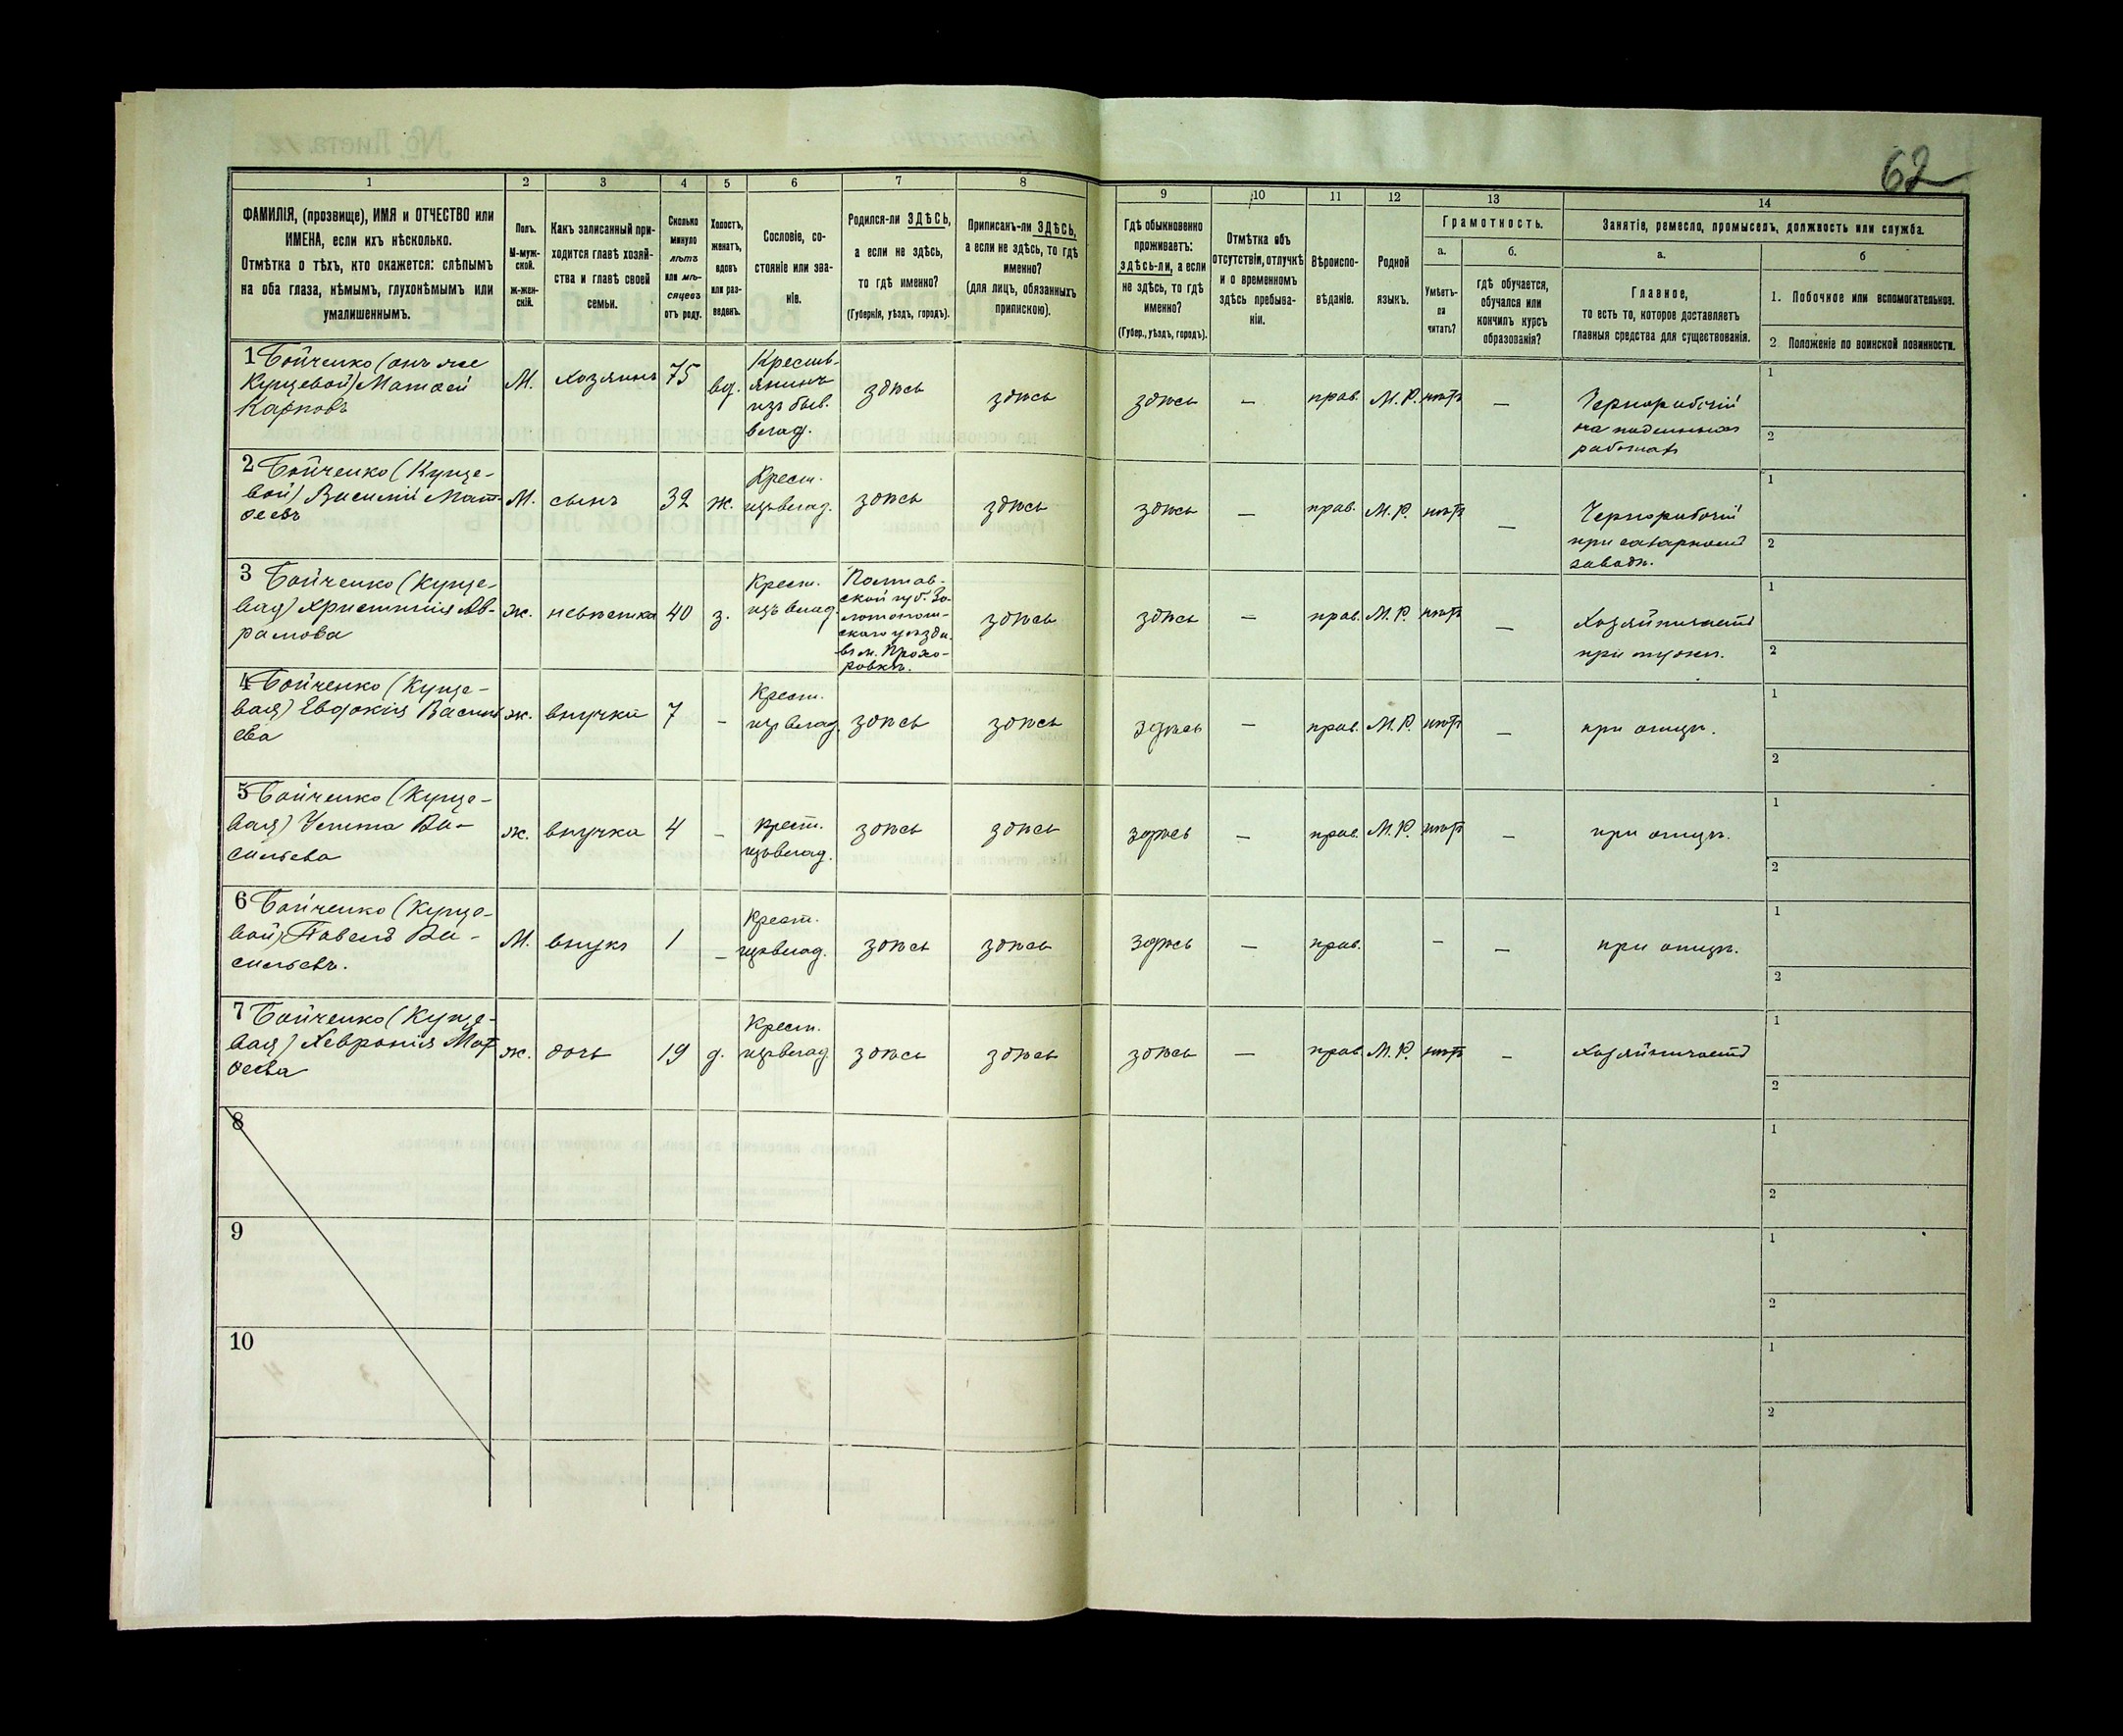 62
1
2
3
4
5
6
7
8
9
10
11
12
13
14
ФАМИЛІЯ, (прозвище), ИМЯ и ОТЧЕСТВО или
ИМЕНА, если ихъ нѣсколько.
Отмѣтка о тѣхъ, кто окажется: слѣпымъ
на оба глаза, нѣмымъ, глухонѣмымъ или
умалишеннымъ.
Полъ.
М-муж-
ской.
ж-жен-
скій.
Какъ записанный при-
ходится главѣ хозяй-
ства и главѣ своей
семьи.
Сколько
минуло
лѣтъ
или мѣ-
сяцевъ
отъ роду.
Холостъ,
женатъ,
вдовъ
или раз-
веденъ.
Сословіе, со-
стояніе или зва-
ніе.
Родился-ли ЗДѢСЬ,
а если не здѣсь,
то гдѣ именно?
(Губернія, уѣздъ, городъ).
Приписанъ-ли ЗДѢСЬ,
а если не здѣсь, то гдѣ
именно?
(для лицъ, обязанныхъ
припискою).
Гдѣ обыкновенно
проживаетъ:
ЗДѢСЬ-ли, а если
не здѣсь, то гдѣ
именно?
(Губер., уѣздъ, городъ).
Отмѣтка объ
отсутствіи, отлучкѣ
и о временномъ
здѣсь пребыва-
ніи.
Вѣроиспо-
вѣданіе.
Родной
языкъ.
Грамотность.
а.
Умѣетъ-
ли
читать?
б.
гдѣ обучается,
обучался или
кончилъ курсъ
образованія?
Занятіе, ремесло, промыселъ, должность или служба.
а.
Главное,
то есть то, которое доставляетъ
главныя средства для существованія.
б
1. Побочное или вспомогательное.
2. Положеніе по воинской повинности.
1 Бойченко (онъ же
Кунцевой) Матѳей
Карповъ
М.
хозяинъ
75
вд.
Кресть-
янинъ
изъ быв.
влад.
здѣсь
здѣсь
здѣсь
—
прав.
М. Р.
нѣтъ
—
Чернорабочій
на поденныхъ
работахъ
1
2
2 Бойченко (Кунце-
вой) Василій Мат-
ѳеевъ
М.
сынъ
32
ж.
Крест.
изъ влад.
здѣсь
здѣсь
здѣсь
—
прав.
М. Р.
нѣтъ
—
Чернорабочій
при сахарномъ
заводѣ.
1
2
3 Бойченко (Кунце-
вая) Христинія Ав-
рамова
ж.
невѣстка
40
з.
Крест.
изъ влад.
Полтав-
ской губ. Зо-
лотонош-
скаго уѣзда
въ м. Прохо-
ровкѣ.
здѣсь
здѣсь
—
прав.
М. Р.
нѣтъ
—
Хозяйничаетъ
при мужѣ.
1
2
4 Бойченко (Кунце-
вая) Евдокія Василь
ева
ж.
внучка
7
-
Крест.
изъ влад.
здѣсь
здѣсь
здѣсь
—
прав.
М. Р.
нѣтъ
—
при отцѣ.
1
2
5 Бойченко (Кунце-
вая) Ва-
сильева
ж.
внучка
4
-
Крест.
изъ влад.
здѣсь
здѣсь
здѣсь
—
прав.
М. Р.
нѣтъ
—
при отцѣ.
1
2
6 Бойченко (Кунце-
вой) Павелъ Ва-
сильевъ.
М.
внукъ
1
-
Крест.
изъ влад.
здѣсь
здѣсь
здѣсь
—
прав.
-
—
при отцѣ.
1
2
7 Бойченко (Кунце-
вая) Хевронія Мат
ѳеева
ж.
дочь
19
д.
Крест.
изъ влад.
здѣсь
здѣсь
здѣсь
—
прав.
М. Р.
нѣтъ
—
Хозяйничаетъ
1
2
8
1
2
9
1
2
10
1
2